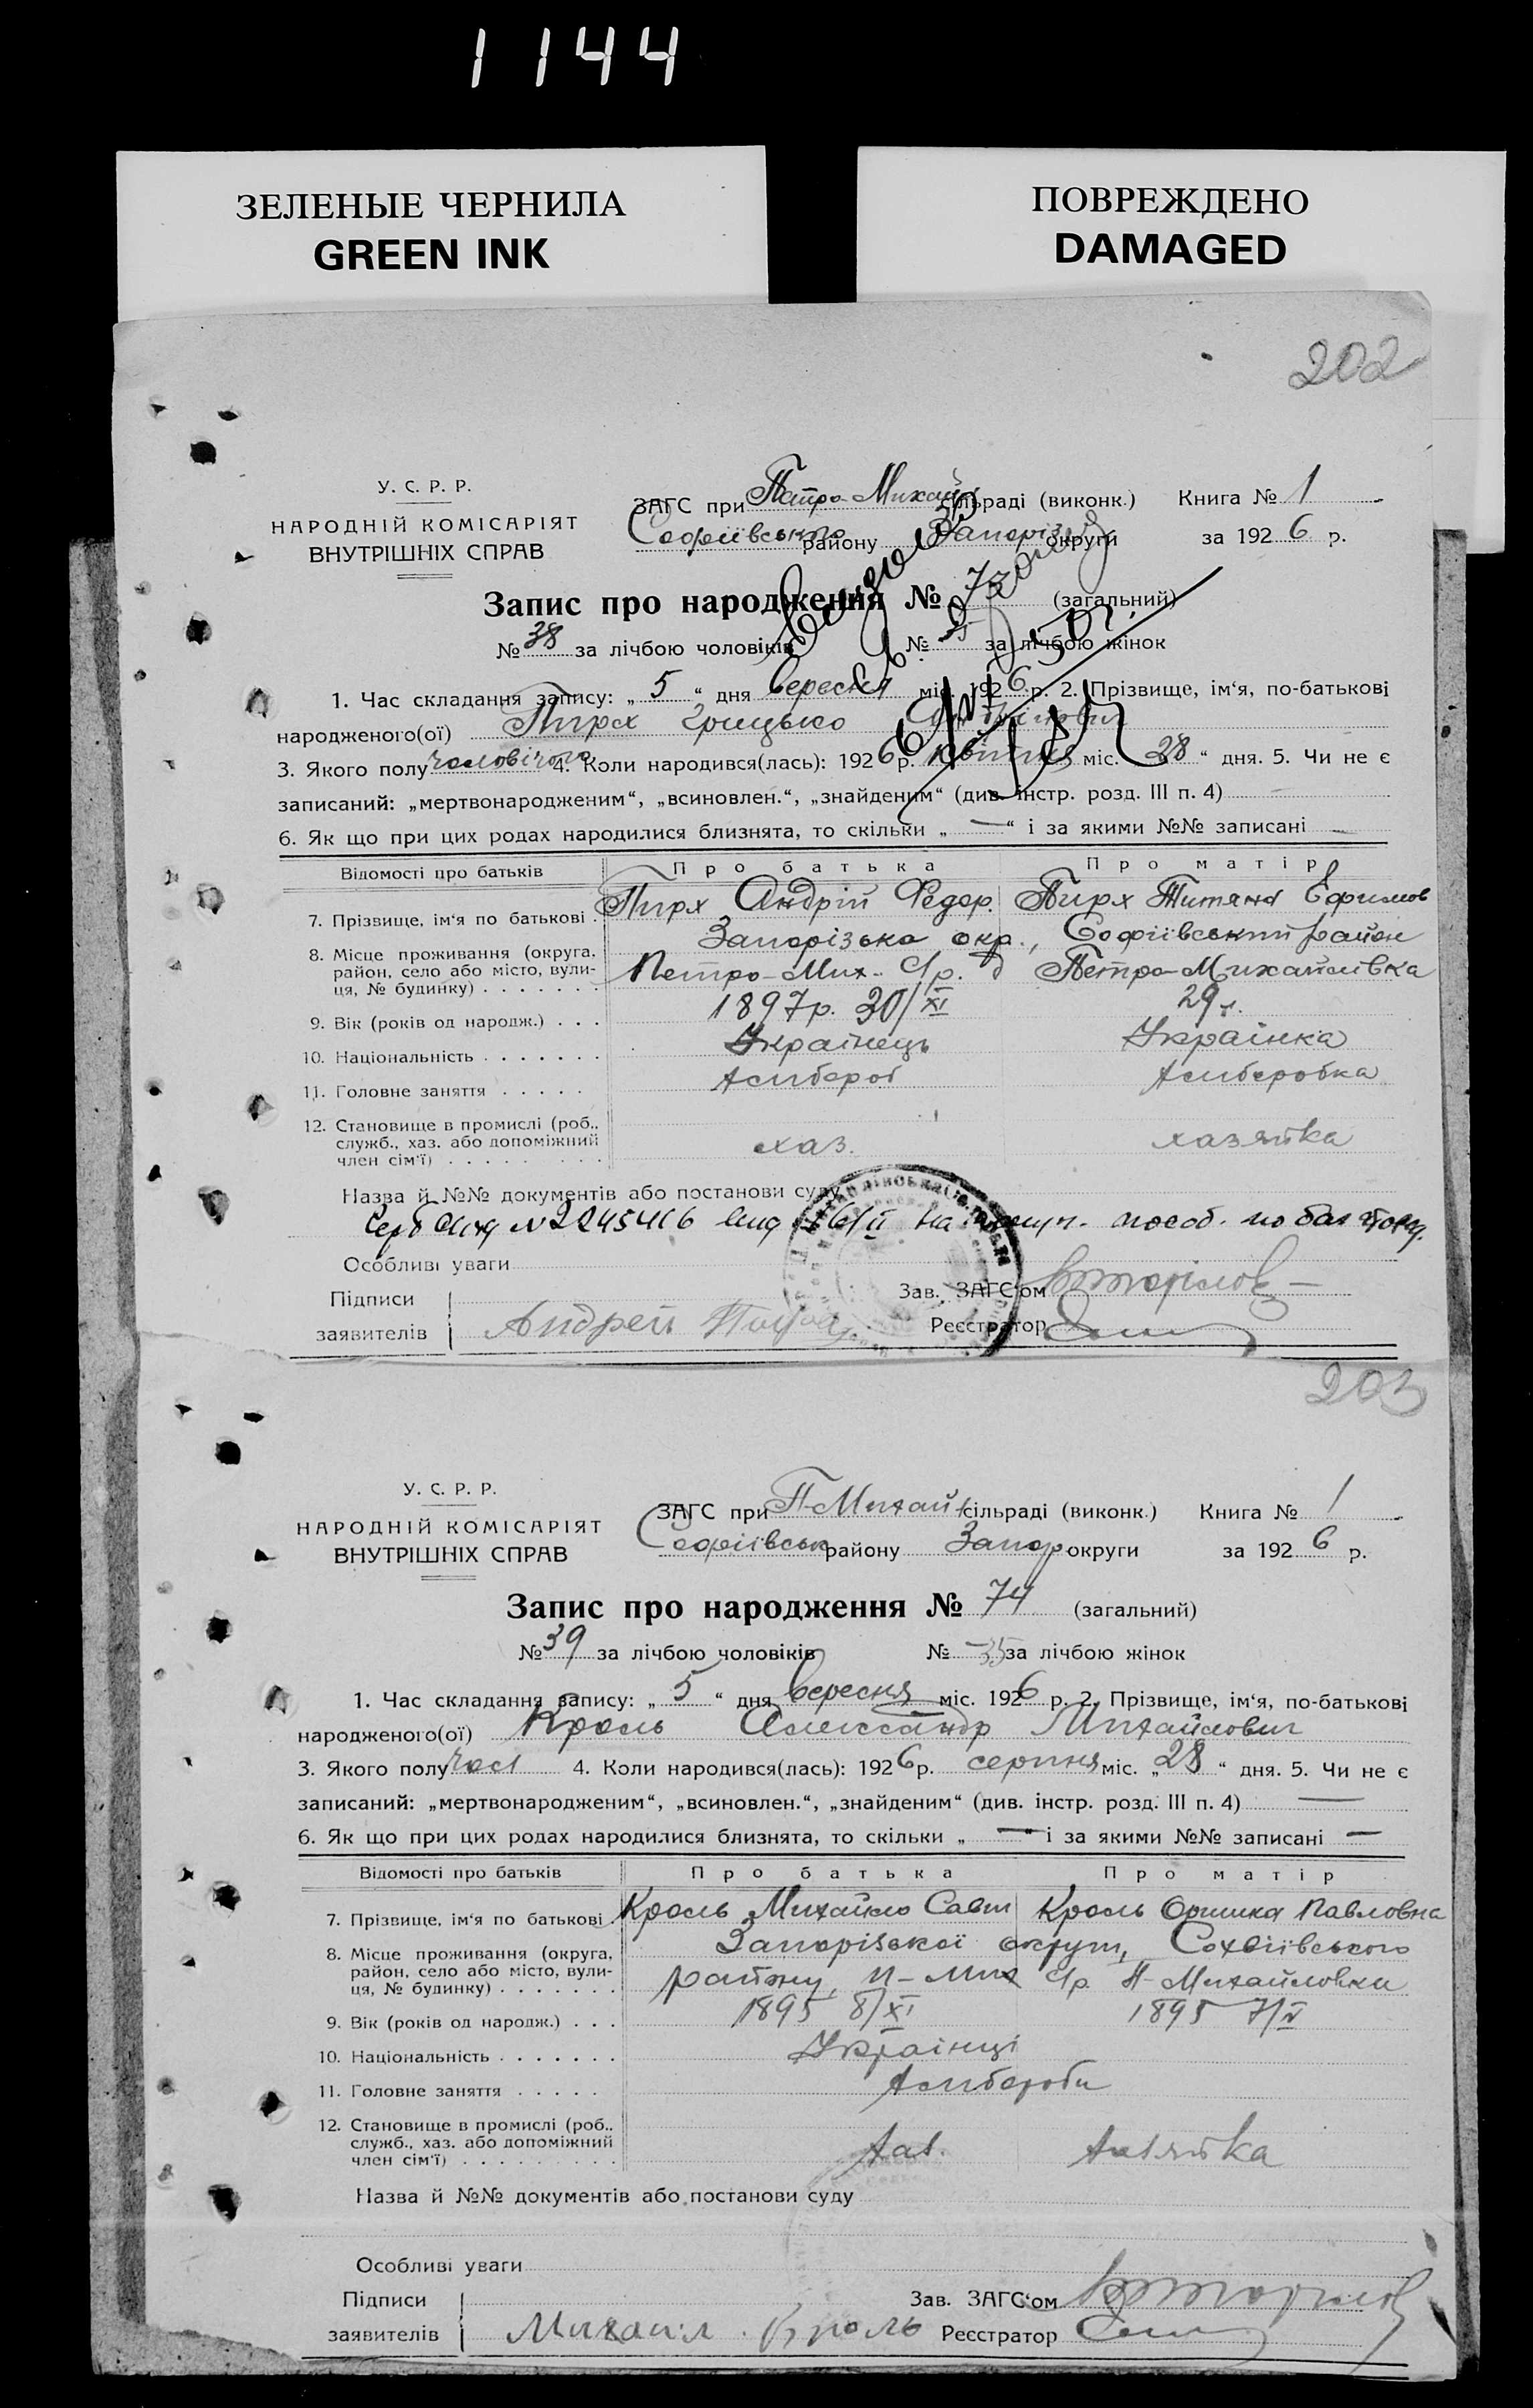 1144
ЗЕЛЕНЫЕ ЧЕРНИЛА
GREEN INK
ПОВРЕЖДЕНО
DAMAGED
202
У. С. Р. Р.
НАРОДНІЙ КОМІСАРІЯТ
ВНУТРІШНІХ СПРАВ
ЗАГС при Петро-Михайл сільраді (виконк.) Книга № 1
Софіївського району Запорізьк округи за 1926 р.
Запис про народження № 73 (загальний)
№ 38 за лічбою чоловіків № 35 за лічбою жінок
1. Час складання запису: „ 5 “ дня вересня міс. 1926 р. 2. Прізвище, ім‘я, по-батькові
народженого(ої) Пирх Грицько
3. Якого полу чоловічого 4. Коли народився(лась): 1926 р. міс. „28“ дня. 5. Чи не є
записаний: „мертвонародженим“, „всиновлен.“, „знайденим“ (див. інстр. розд. III п. 4)
6. Як що при цих родах народилися близнята, то скільки „ — “ і за якими №№ записані —
Відомості про батьків Про батька Про матір
7. Прізвище, ім‘я по батькові . Пирх Андрій Федор. Пирх Титяна Ефимов
8. Місце проживання (округа, район, село або місто, вулиця, № будинку) Запорізька окр., Софіївський район
Петро-Мих- С/р. Петро-Михайлівка
9. Вік (років од народж.) . . . 1897р. 30/XI 29 л.
10. Національність . . . . . . . Українець Українка
11. Головне заняття . . . . . Хлибороб Хлиборобка
12. Становище в промислі (роб.. служб., хаз. або допоміжний член сім‘ї) хаз. хазяйка
Назва й №№ документів або постанови суду
№ 2245416 на пособ. по
Особливі уваги
Підписи
заявителів Андрей Пирх
Зав. ЗАГС‘ом
Реєстратор
203
У. С. Р. Р.
НАРОДНІЙ КОМІСАРІЯТ
ВНУТРІШНІХ СПРАВ
ЗАГС при П-Михайл сільраді (виконк.) Книга № 1
Софіївськ району Запор округи за 1926 р.
Запис про народження № 74 (загальний)
№ 39 за лічбою чоловіків № 35 за лічбою жінок
1. Час складання запису: „ 5 “ дня вересня міс. 1926 р. 2. Прізвище, ім‘я, по-батькові
народженого(ої) Кроль Александр Михайлович
3. Якого полу чол 4. Коли народився(лась): 1926 р. серпня міс. „28“ дня. 5. Чи не є
записаний: „мертвонародженим“, „всиновлен.“, „знайденим“ (див. інстр. розд. III п. 4) —
6. Як що при цих родах народилися близнята, то скільки „ — “ і за якими №№ записані —
Відомості про батьків Про батька Про матір
7. Прізвище, ім‘я по батькові . Кроль Михайло Савт Кроль Оришка Павловна
8. Місце проживання (округа, район, село або місто, вулиця, № будинку) Запорізької округи, Сохвіївського
району, П-Мих С/р П-Михайловки
9. Вік (років од народж.) . . . 1895 8/XI 1895 7/V
10. Національність . . . . . . . Українці
11. Головне заняття . . . . . Хлибороби
12. Становище в промислі (роб.. служб., хаз. або допоміжний член сім‘ї) Хаз. Хазяйка
Назва й №№ документів або постанови суду
Особливі уваги
Підписи
заявителів Михаил Кроль
Зав. ЗАГС‘ом
Реєстратор